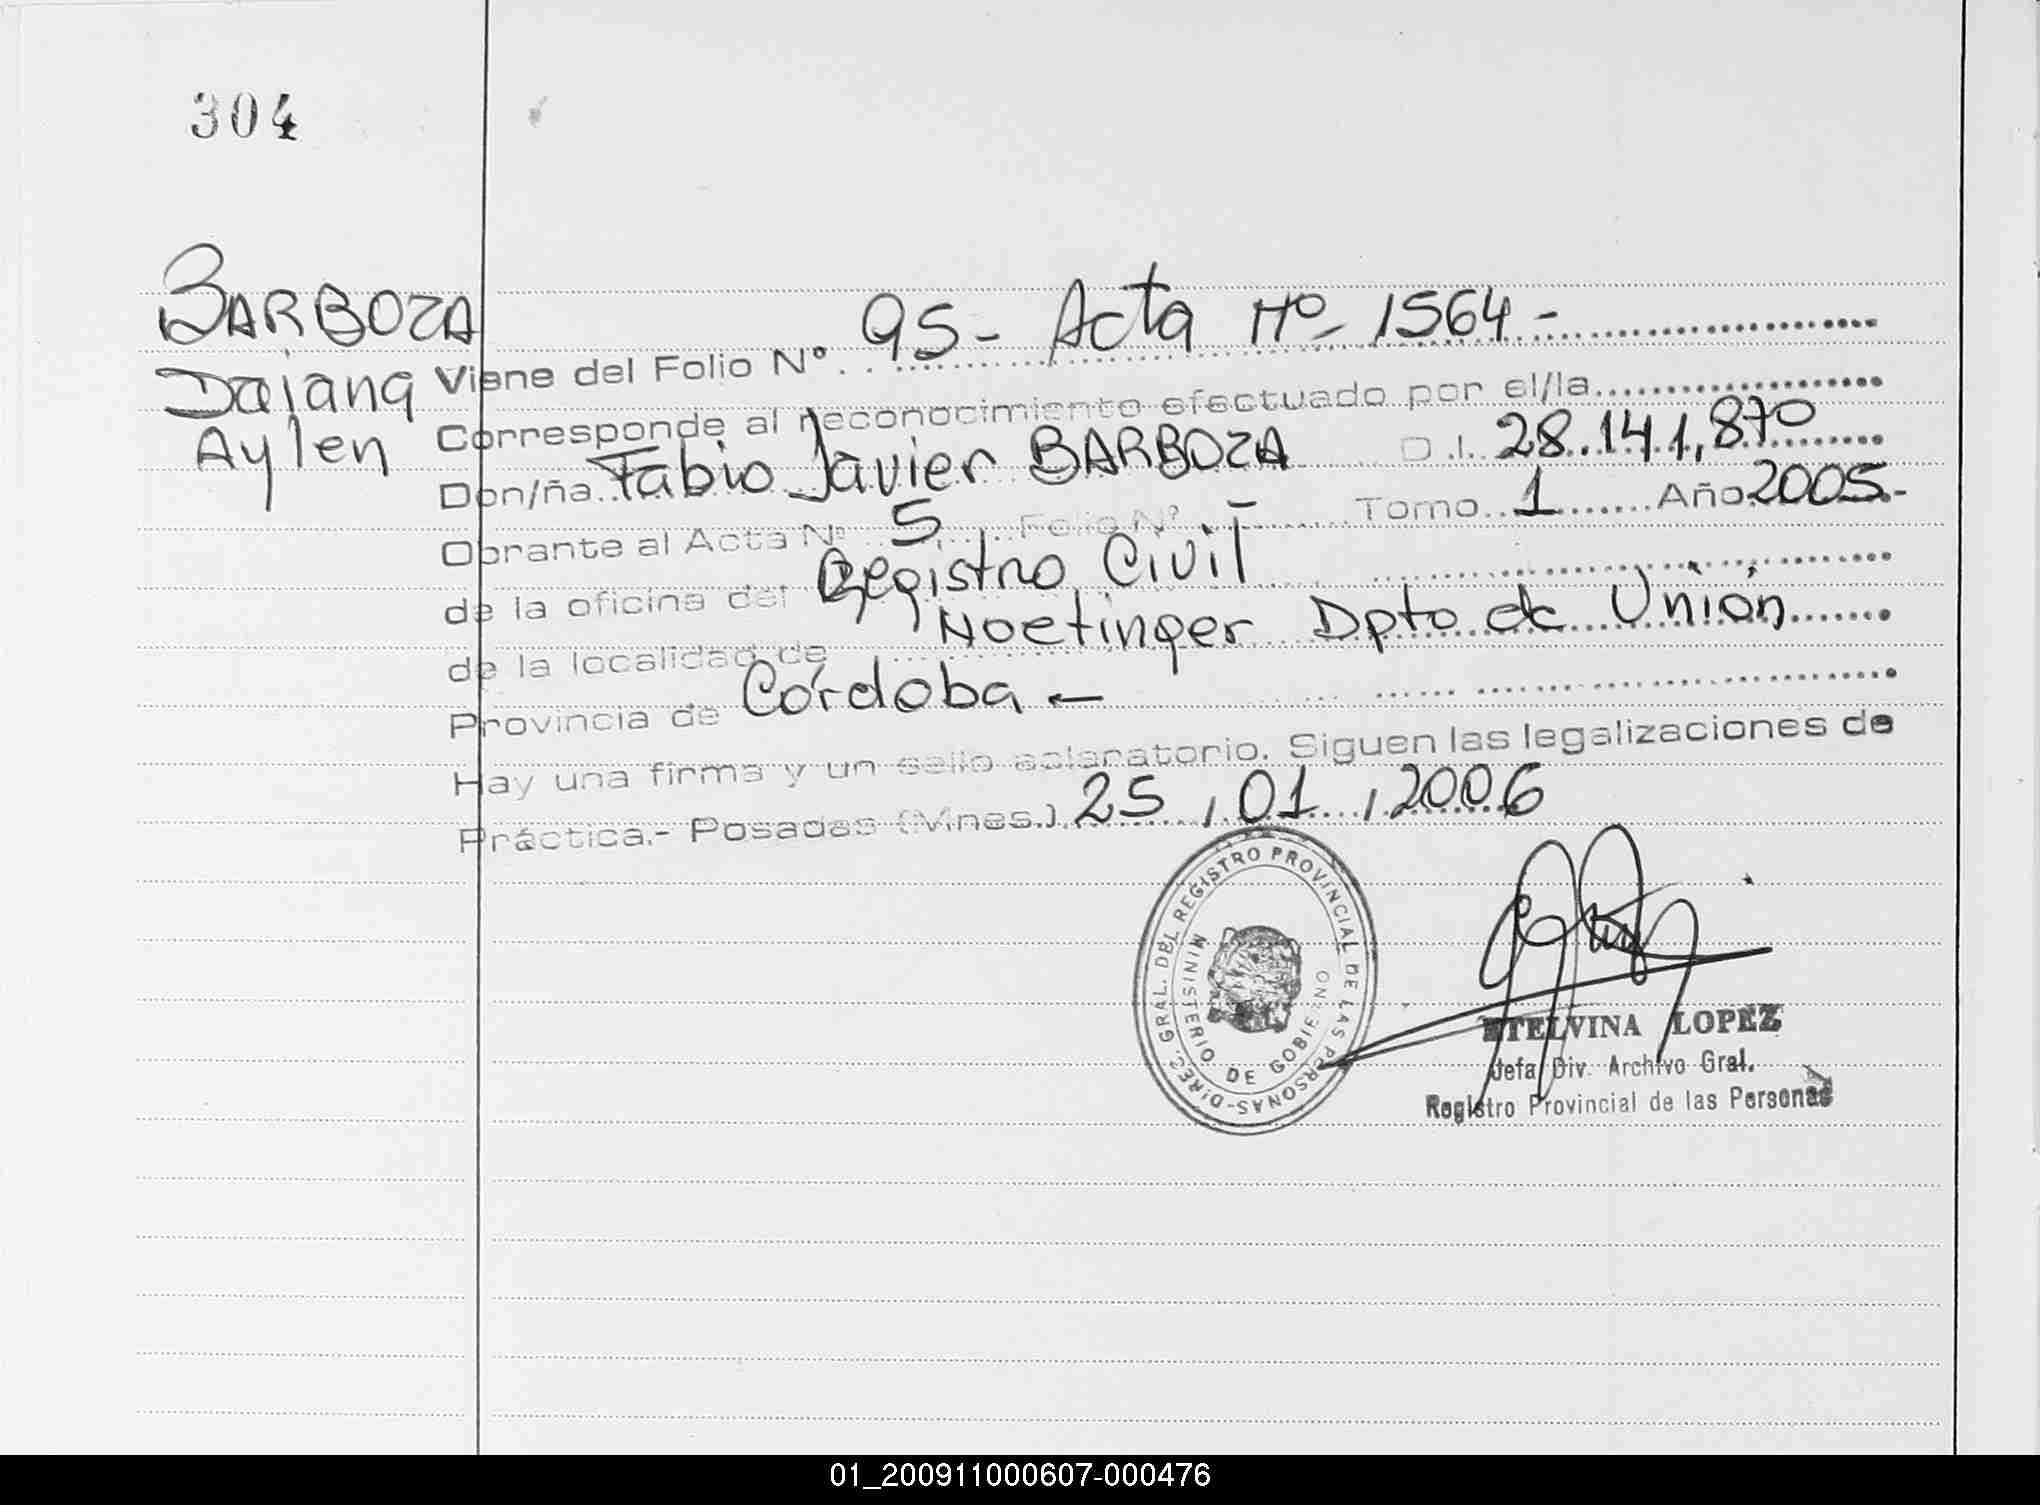 304
BARBOZA
Daiana
Aylen
Viene del Folio N° . . 95 - Acta Nº 1564 -
Corresponde al reconocimiento efectuado por el/la
Don/ña Fabio Javier BARBOZA D.I. 28.141,870
Obrante al Acta Nº 5 Folio Nº - Tomo 1 Año 2005.-
de la oficina del Registro Civil
de la localidad de Noetinger Dpto de Unión
Provincia de Córdoba -
Hay una firma y un sello aclaratorio. Siguen las legalizaciones de
Práctica.- Posadas (Mnes.) 25, 01, 2006
DIREC. GRAL. DEL REGISTRO PROVINCIAL DE LAS PERSONAS-
MINISTERIO DE GOBIERNO
ETELVINA LOPEZ
Jefa Div. Archivo Gral.
Registro Provincial de las Personas
01_200911000607-000476